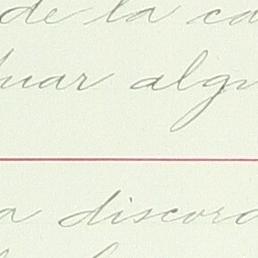 de la ca
uar algu
a discord